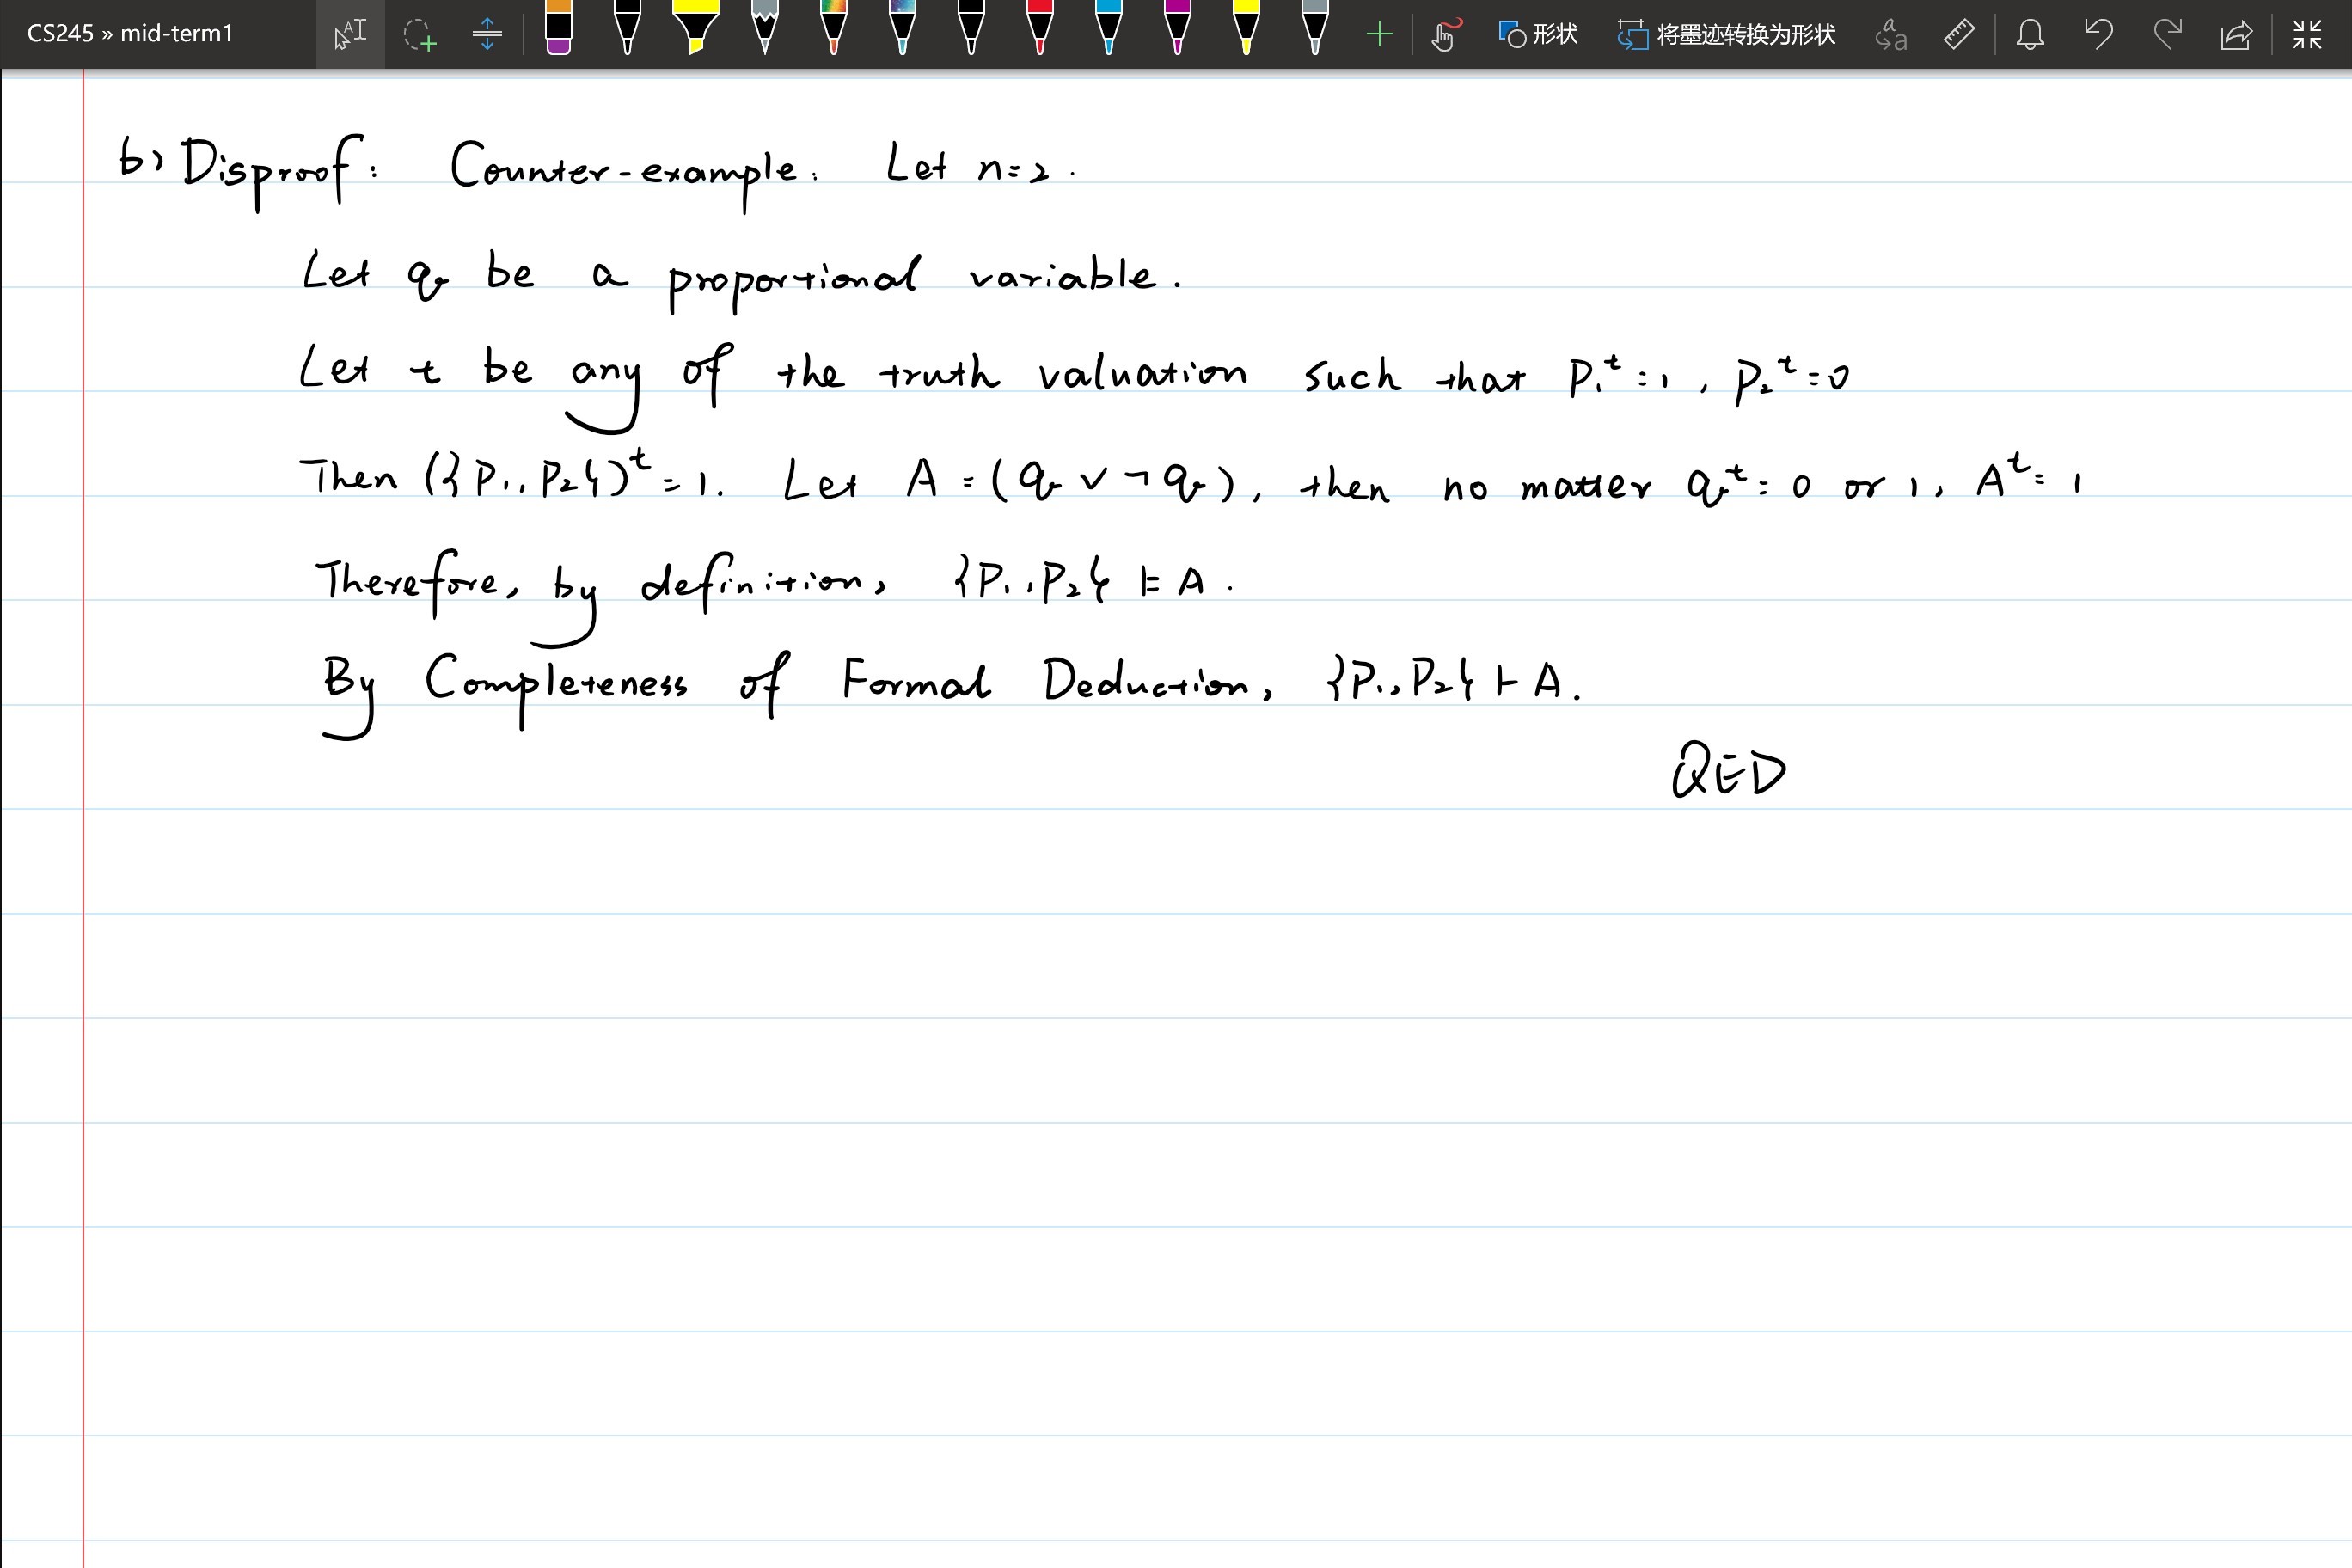 CS245 » mid-term1 形状 将墨迹转换为形状
b) Disproof: Counter-example. Let n=2.
Let q be a propartional variable.
Let t be any of the truth valuation such that P₁ᵗ=1, P₂ᵗ=0
Then ({P₁, P₂})ᵗ=1. Let A=(q∨¬q), then no matter qᵗ=0 or 1, Aᵗ=1
Therefore, by definition, {P₁, P₂} ⊨ A.
By Completeness of Formal Deduction, {P₁, P₂} ⊢ A.
QED